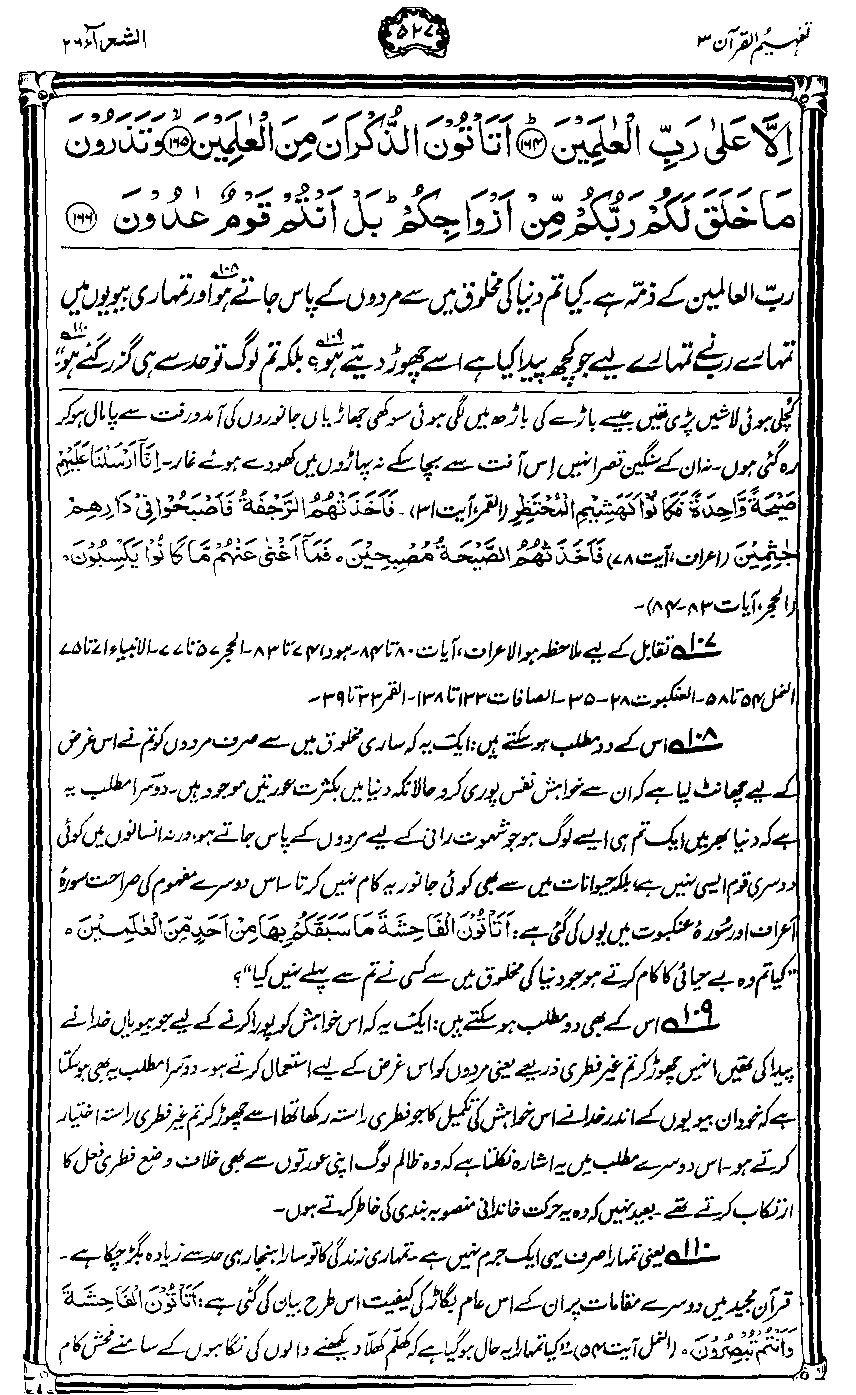 تفہیم القرآن ۳
۵۲۷
الشعرآء ۲۶
اِلَّا عَلٰى رَبِّ الْعٰلَمِيْنَ ﴿۱۶۴﴾ اَتَاْتُوْنَ الذُّكْرَانَ مِنَ الْعٰلَمِيْنَ ﴿۱۶۵﴾ وَتَذَرُوْنَ
مَا خَلَقَ لَكُمْ رَبُّكُمْ مِّنْ اَزْوَاجِكُمْ ؕ بَلْ اَنْتُمْ قَوْمٌ عٰدُوْنَ ﴿۱۶۶﴾
ربّ العالمین کے ذمّہ ہے۔ کیا تم دنیا کی مخلوق میں سے مردوں کے پاس جاتے ہو۱۰۸ اور تمہاری بیویوں میں
تمہارے رب نے تمہارے لیے جو کچھ پیدا کیا ہے اسے چھوڑ دیتے ہو؟۱۰۹ بلکہ تم لوگ تو حد سے ہی گزر گئے ہو۱۱۰"
کچلی ہوئی لاشیں پڑی تھیں جیسے باڑے کی باڑھ میں لگی ہوئی سوکھی جھاڑیاں جانوروں کی آمد و رفت سے پامال ہو کر
رہ گئی ہوں۔ نہ ان کے سنگین قصر انہیں اِس آفت سے بچا سکے نہ پہاڑوں میں کھودے ہوئے غار۔ اِنَّآ اَرْسَلْنَا عَلَيْهِمْ
صَيْحَةً وَّاحِدَةً فَكَانُوْا كَهَشِيْمِ الْمُحْتَظِرِ (القمر، آیت ۳۱)۔ فَاَخَذَتْهُمُ الرَّجْفَةُ فَاَصْبَحُوْا فِيْ دَارِهِمْ
جٰثِمِيْنَ (اعراف، آیت ۷۸) فَاَخَذَتْهُمُ الصَّيْحَةُ مُصْبِحِيْنَ ۰ فَمَآ اَغْنٰى عَنْهُمْ مَّا كَانُوْا يَكْسِبُوْنَ ۰
(الحجر، آیات ۸۳-۸۴)۔
۱۰۷ تقابل کے لیے ملاحظہ ہو الاعراف، آیات ۸۰ تا ۸۴۔ ہود ۷۴ تا ۸۳۔ الحجر ۵۷ تا ۷۷۔ الانبیاء ۷۱ تا ۷۵
النمل ۵۴ تا ۵۸۔ العنکبوت ۲۸-۳۵۔ الصافات ۱۳۳ تا ۱۳۸۔ القمر ۳۳ تا ۳۹۔
۱۰۸ اس کے دو مطلب ہو سکتے ہیں: ایک یہ کہ ساری مخلوق میں سے صرف مردوں کو تم نے اس غرض
کے لیے چھانٹ لیا ہے کہ ان سے خواہش نفس پوری کرو حالانکہ دنیا میں بکثرت عورتیں موجود ہیں۔ دوسرا مطلب یہ
ہے کہ دنیا بھر میں ایک تم ہی ایسے لوگ ہو جو شہوت رانی کے لیے مردوں کے پاس جاتے ہو، ورنہ انسانوں میں کوئی
دوسری قوم ایسی نہیں ہے، بلکہ حیوانات میں سے بھی کوئی جانور یہ کام نہیں کرتا۔ اس دوسرے مفہوم کی صراحت سورۂ
اَعراف اور سُورۂ عنکبوت میں یوں کی گئی ہے: اَتَاْتُوْنَ الْفَاحِشَةَ مَا سَبَقَكُمْ بِهَا مِنْ اَحَدٍ مِّنَ الْعٰلَمِيْنَ ۰
"کیا تم وہ بے حیائی کا کام کرتے ہو جو دنیا کی مخلوق میں سے کسی نے تم سے پہلے نہیں کیا"؟
۱۰۹ اس کے بھی دو مطلب ہو سکتے ہیں: ایک یہ کہ اس خواہش کو پورا کرنے کے لیے جو بیویاں خدا نے
پیدا کی تھیں انہیں چھوڑ کر تم غیر فطری ذریعے یعنی مردوں کو اس غرض کے لیے استعمال کرتے ہو۔ دوسرا مطلب یہ بھی ہو سکتا
ہے کہ خود ان بیویوں کے اندر خدا نے اس خواہش کی تکمیل کا جو فطری راستہ رکھا تھا اسے چھوڑ کر تم غیر فطری راستہ اختیار
کرتے ہو۔ اس دوسرے مطلب میں یہ اشارہ نکلتا ہے کہ وہ ظالم لوگ اپنی عورتوں سے بھی خلاف وضع فطری فعل کا
ارتکاب کرتے تھے۔ بعید نہیں کہ وہ یہ حرکت خاندانی منصوبہ بندی کی خاطر کرتے ہوں۔
۱۱۰ یعنی تمہارا صرف یہی ایک جرم نہیں ہے۔ تمہاری زندگی کا تو سارا ہنجار ہی حد سے زیادہ بگڑ چکا ہے۔
قرآن مجید میں دوسرے مقامات پر ان کے اس عام بگاڑ کی کیفیت اس طرح بیان کی گئی ہے: اَتَاْتُوْنَ الْفَاحِشَةَ
وَاَنْتُمْ تُبْصِرُوْنَ ۰ (النمل آیت ۵۴)" کیا تمہارا یہ حال ہو گیا ہے کہ کھلّم کھلّا دیکھنے والوں کی نگاہوں کے سامنے فحش کام